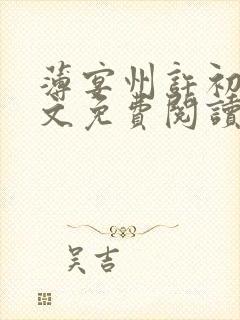 薄宴州許初
文免費閱讀
吴吉